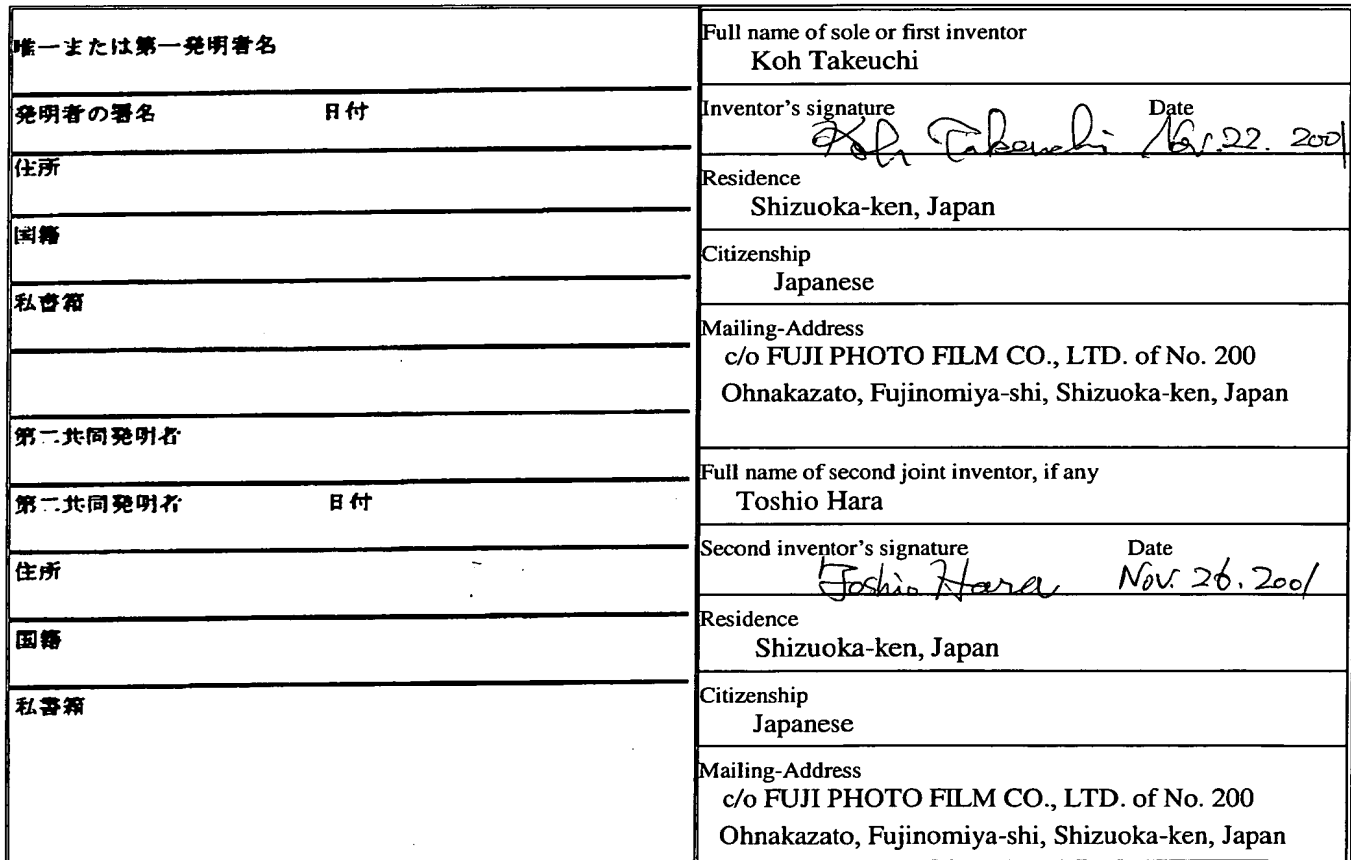 唯一または第一発明者名
発明者の署名 日付
住所
国籍
私書箱
第二共同発明者
第二共同発明者 日付
住所
国籍
私書箱
Full name of sole or first inventor
Koh Takeuchi
Inventor's signature Date
Koh Takeuchi Nov. 22. 2001
Residence
Shizuoka-ken, Japan
Citizenship
Japanese
Mailing-Address
c/o FUJI PHOTO FILM CO., LTD. of No. 200
Ohnakazato, Fujinomiya-shi, Shizuoka-ken, Japan
Full name of second joint inventor, if any
Toshio Hara
Second inventor's signature Date
Toshio Hara Nov. 26. 2001
Residence
Shizuoka-ken, Japan
Citizenship
Japanese
Mailing-Address
c/o FUJI PHOTO FILM CO., LTD. of No. 200
Ohnakazato, Fujinomiya-shi, Shizuoka-ken, Japan